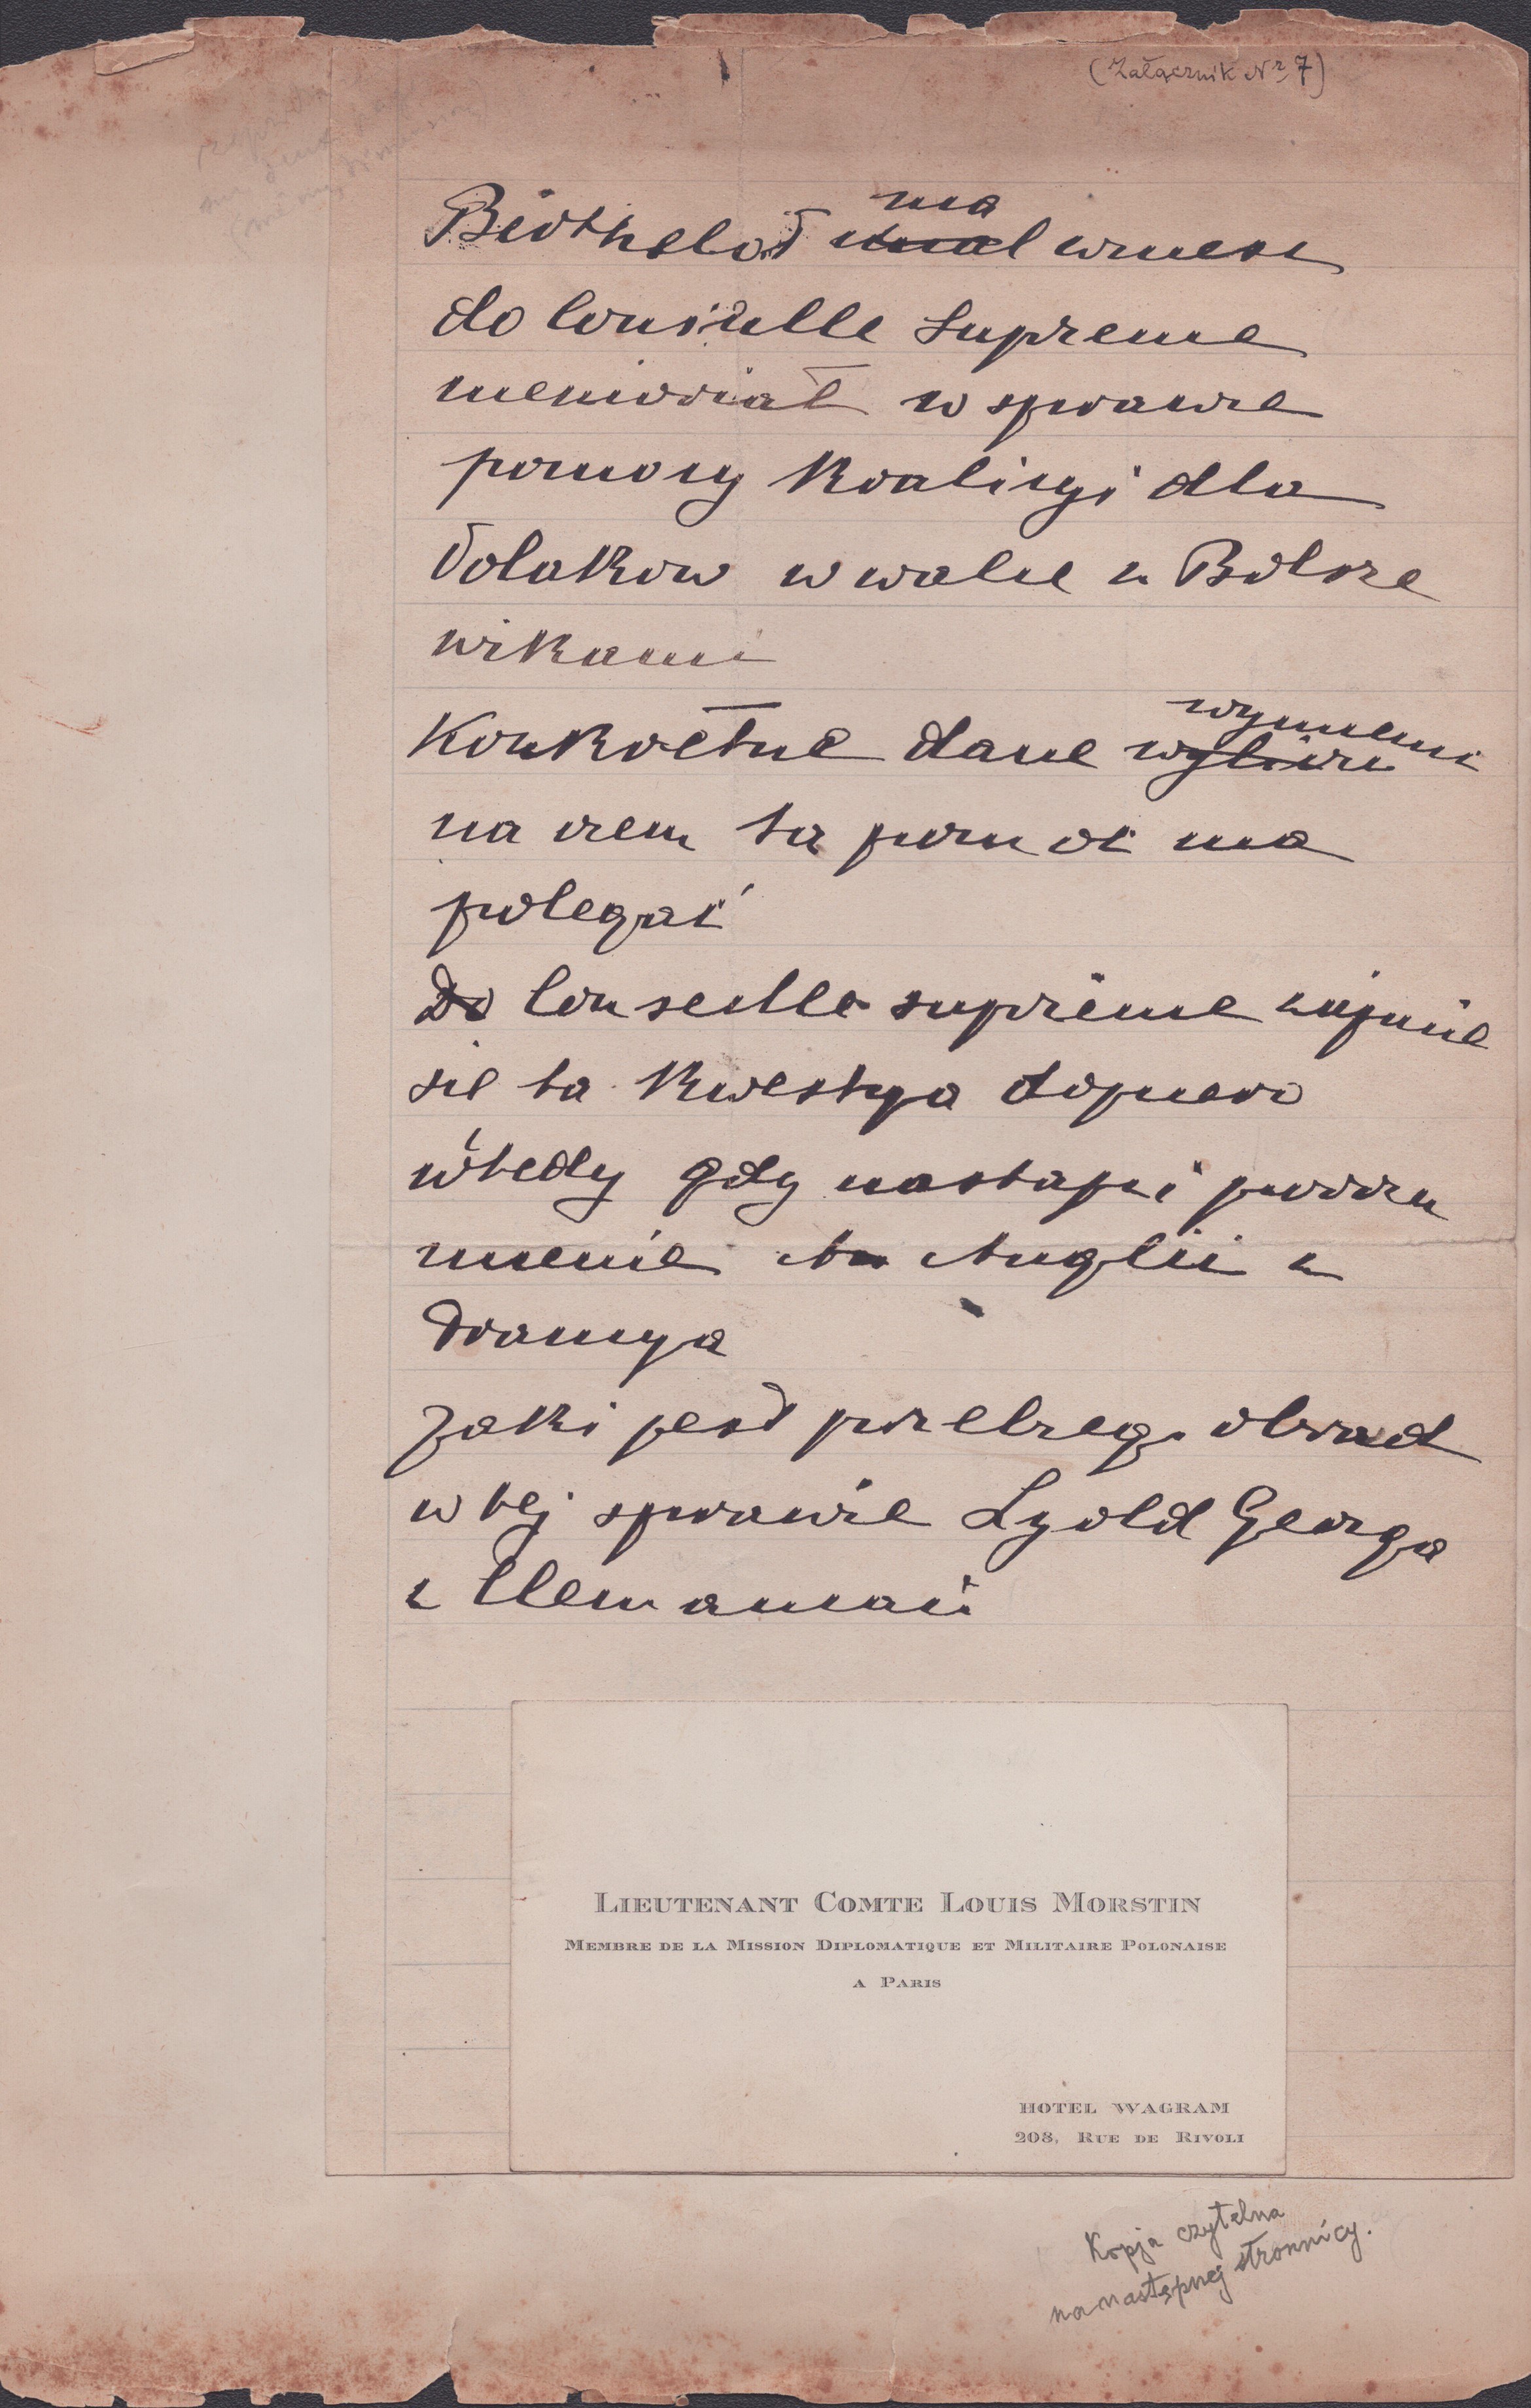 (Załącznik Nr 7)
Berthelot ma wnieść
do Consielle Supreme
memoriał w sprawie
pomocy Koalicyi dla
Polaków w walce z Bolsze
wikami
Konkretne dane wymieni
na czem ta pomoc ma
polegać
Do Conseille suprême wejmie
się ta kwestya dopiero
wtedy gdy nastąpi porozu
mienie An Anglii z
Francya
Jaki jest przebieg obrad
w tej sprawie Lyold Georga
z Clemanceau
LIEUTENANT COMTE LOUIS MORSTIN
MEMBRE DE LA MISSION DIPLOMATIQUE ET MILITAIRE POLONAISE
A PARIS
HOTEL WAGRAM
208, RUE DE RIVOLI
Kopja czytelna
na następnej stronnicy.